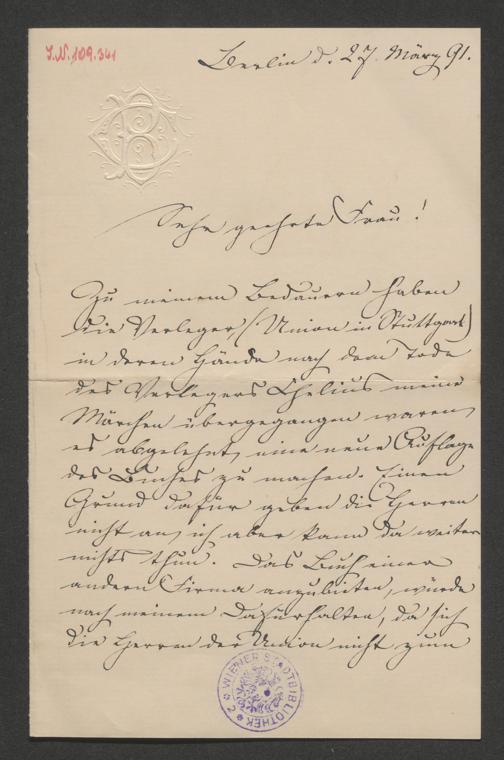 J.N. 109.341
Berlin d. 27. März 91.
Sehr geehrte Frau!
Zu meinem Bedauern haben
die Verleger, (Union in Stuttgart)
in deren Hände nach dem Tode
des Verlegers Chelius meine
Märchen übergegangen waren,
es abgelehnt, eine neue Auflage
des Buches zu machen. Einen
Grund dafür geben die Herren
nicht an, ich aber kann da weiter
nichts thun. Das Buch einer
andern Firma anzubieten, würde
nach meinem Dazuhalten, da sich
die Herren der Union nicht zum
WIENER STADTBIBLIOTHEK